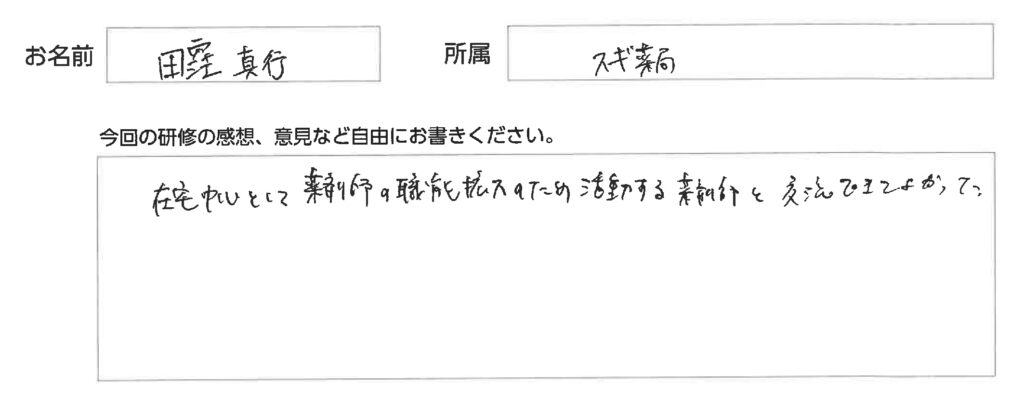 お名前 田窪 真行 所属 スギ薬局
今回の研修の感想、意見など自由にお書きください。
在宅中心として薬剤師の職能拡大のため活動する薬剤師と交流できてよかった